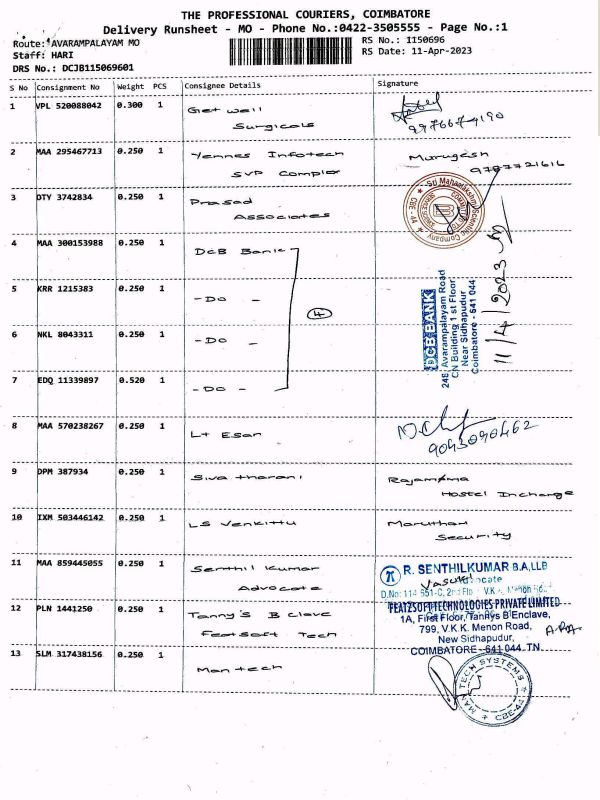 THE PROFESSIONAL COURIERS, COIMBATORE
Delivery Runsheet - MO - Phone No.:0422-3505555 - Page No.:1
Route: AVARAMPALAYAM MO
RS No.: 1150696
Staff: HARI
RS Date: 11-Apr-2023
DRS No.: DCJB115069601
S No Consignment No Weight PCS Consignee Details Signature
1 VPL 520088042 0.300 1 Get well
Surgicals
2 MAA 295467713 0.250 1 Yennes Infotech Murugesh
SVP Complex 9787721616
3 DTY 3742834 0.250 1 Prasad
Associates
Sri Mahalakshmi Scientific Company
CBE
4 MAA 300153988 0.250 1 DCB Bank
5 KRR 1215383 0.250 1 -DO-
6 NKL 8043311 0.250 1 -DO-
7 EDQ 11339897 0.520 1 -DO-
4
DCB BANK
248, Avarampalayam Road
CN Building 1 st Floor
Near Sidhapudur
Coimbatore - 641 044
11/4/2023
8 MAA 570238267 0.250 1 Lt Esan
9043090462
9 DPM 387934 0.250 1 Siva tharani Rajamma
Hostel Incharge
10 IXM 503446142 0.250 1 LS Venkittu Maruthan
Security
11 MAA 859445055 0.250 1 Senthil Kumar
Advocate
R. SENTHILKUMAR B.A,LLB
12 PLN 1441250 0.250 1 Tanny'S B clave
Featsoft Tech
FEATZSOFT TECHNOLOGIES PRIVATE LIMITED
1A, First Floor, Tanrys B Enclave,
799, V.K.K. Menon Road,
New Sidhapudur,
COIMBATORE - 641 044. TN.
13 SLM 317438156 0.250 1 Mantech
MAN TECH SYSTEMS
CBE-44